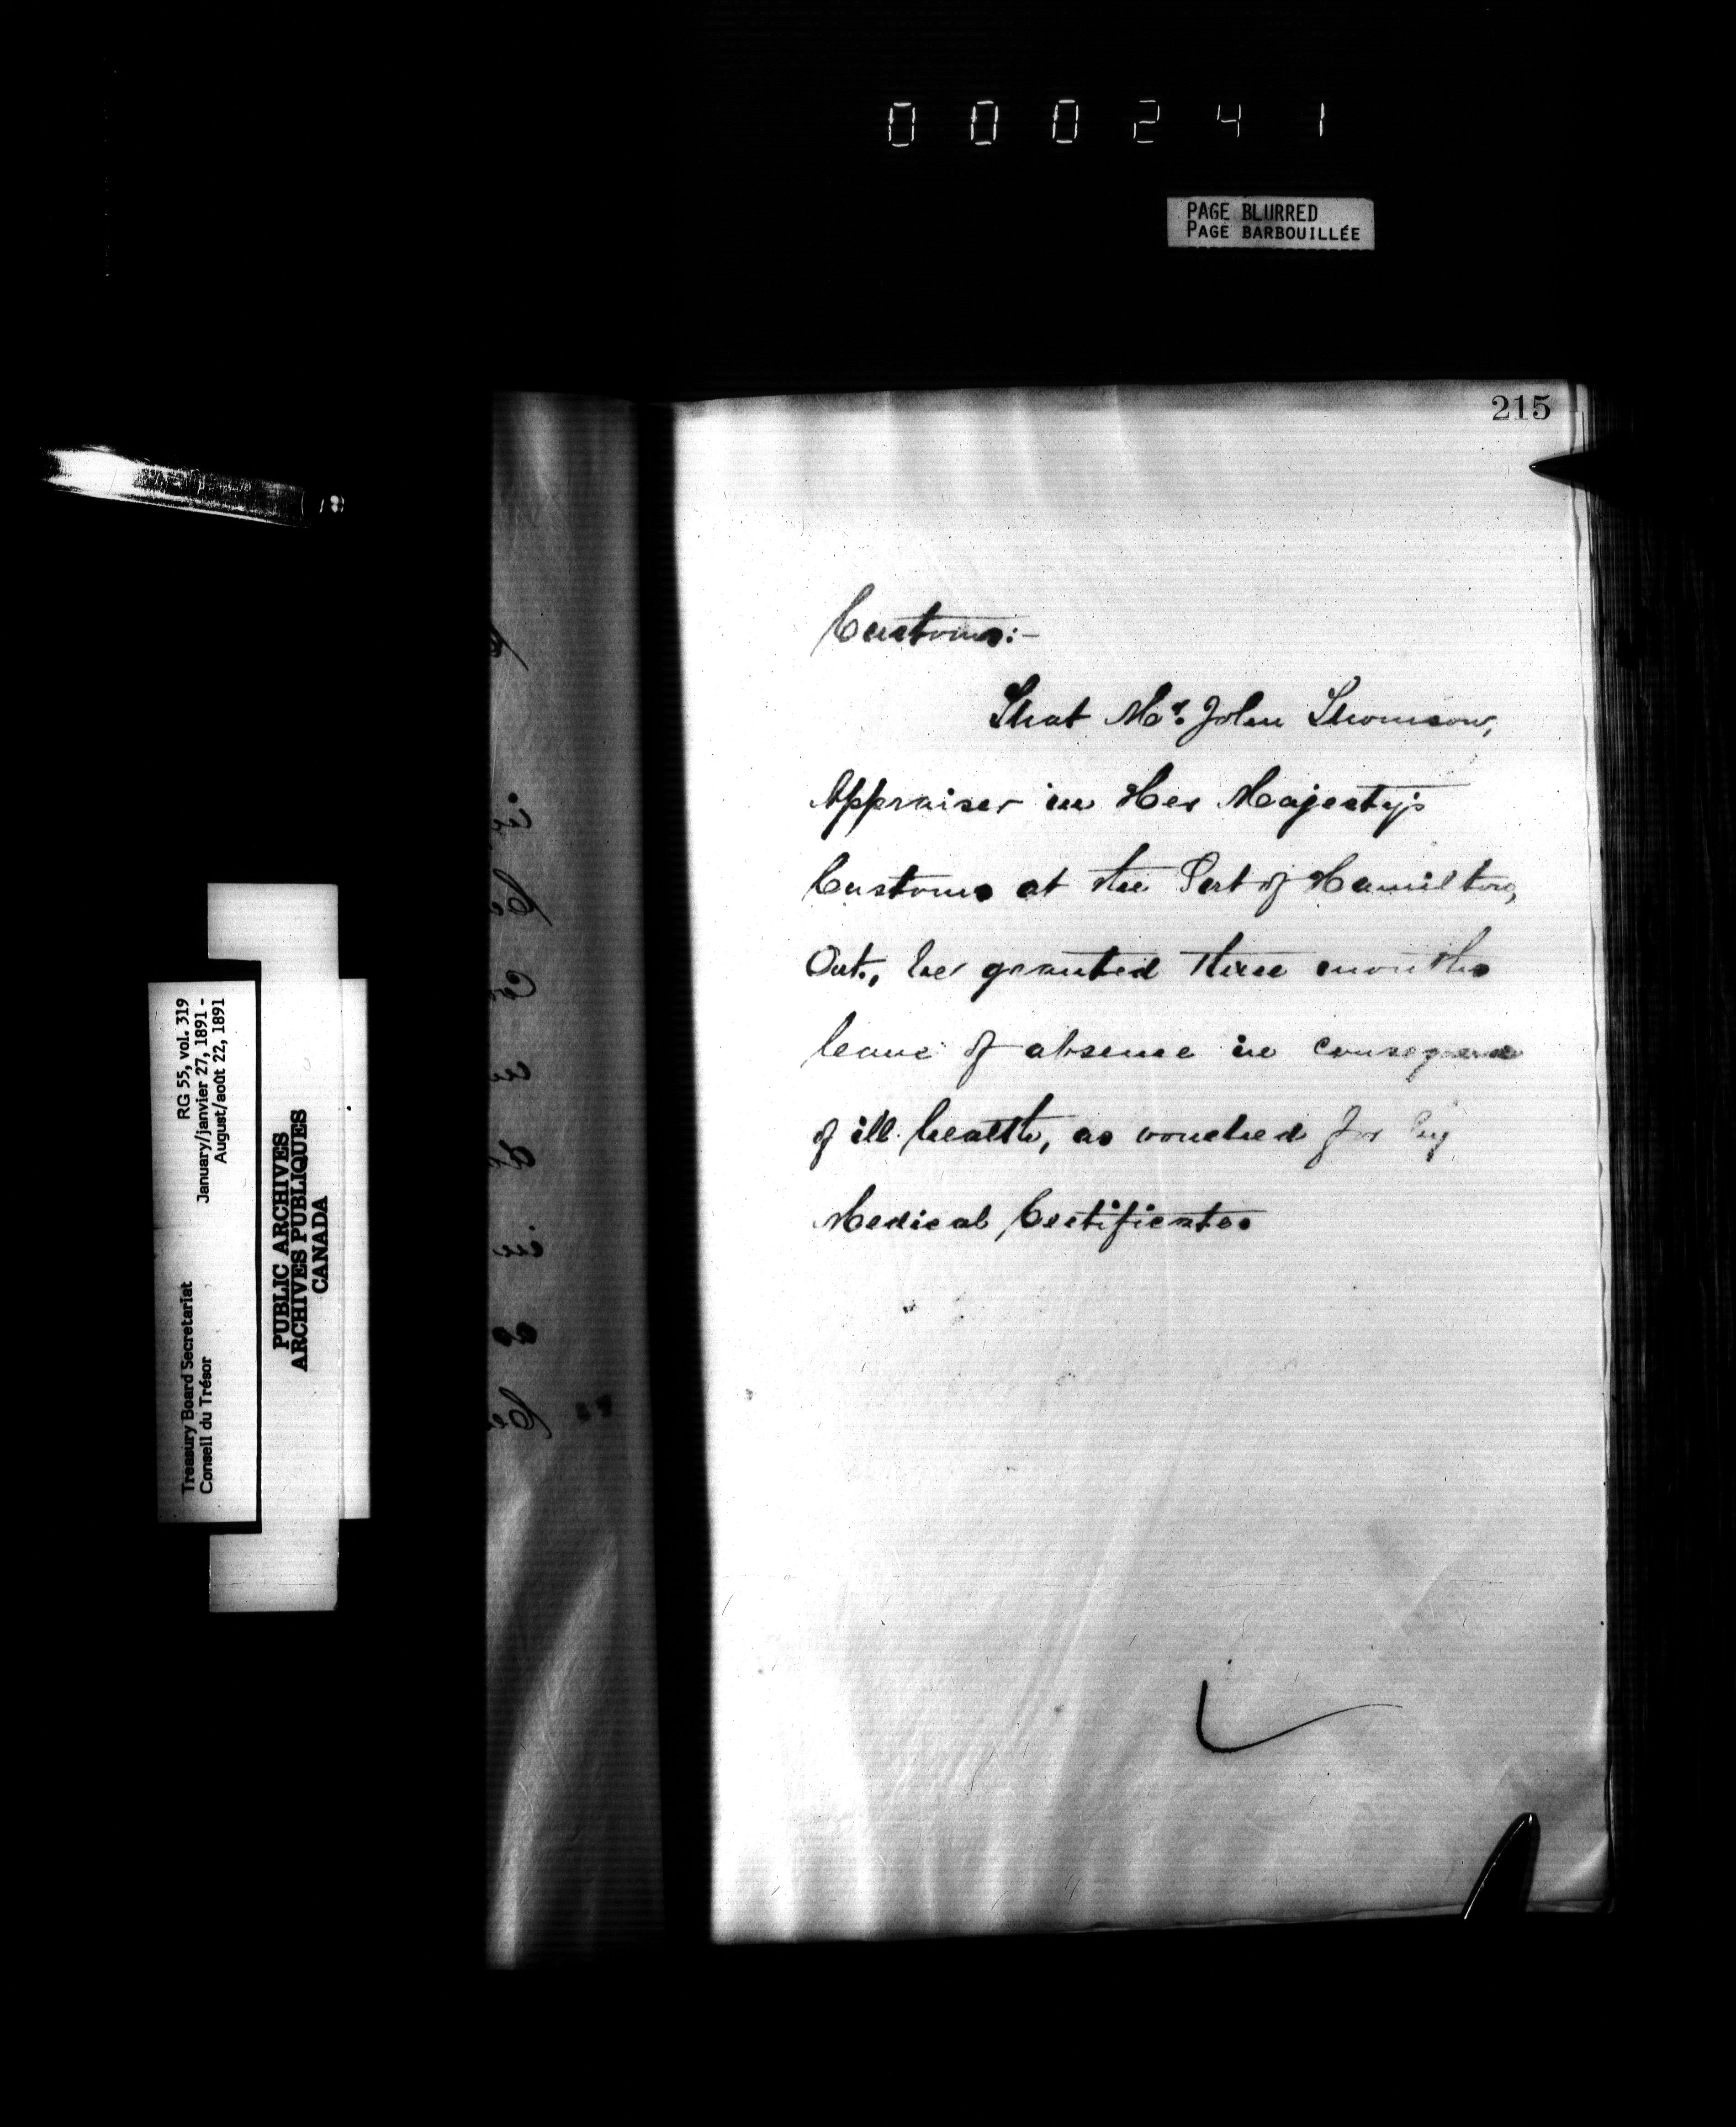 000241
PAGE BLURRED
PAGE BARBOUILLÉE
215
Customs:-
That Mr. John Thomson,
Appraiser in Her Majesty's
Customs at the Port of Hamilton,
Ont., be granted three months
leave of absence in consequence
of ill health, as vouched for by
Medical Certificates
RG 55, vol. 319
January/janvier 27, 1891 -
August/août 22, 1891
Treasury Board Secretariat
Conseil du Trésor
PUBLIC ARCHIVES
ARCHIVES PUBLIQUES
CANADA